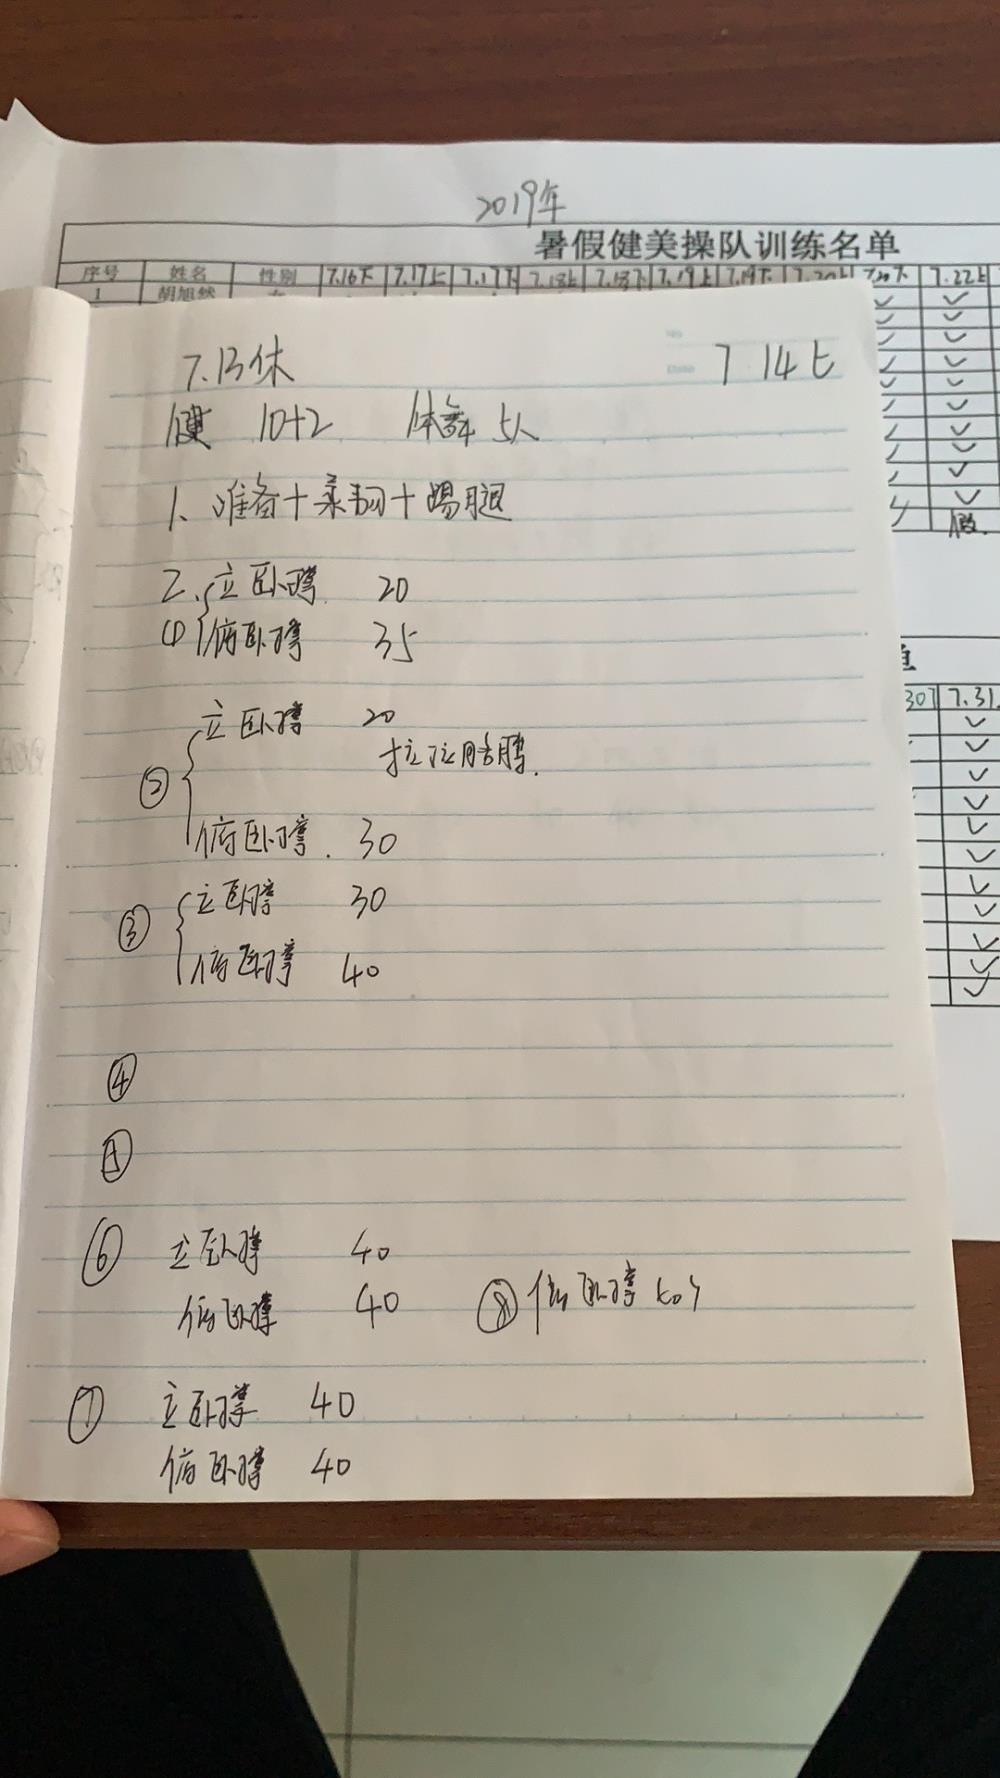 2019年
暑假健美操队训练名单
序号 姓名 性别 7.16下 7.17上 7.17下 7.18上 7.18下 7.19上 7.19下 7.20上 7.20下 7.22上
1 胡旭然 女
假.
单
30下 7.31
7.13休 7.14上
No
Date
健 10+2 体舞 5人
1、准备+柔韧+踢腿
2、立卧撑 20
(1) 俯卧撑 35
立卧撑 20
拉拉胳膊.
②
俯卧撑. 30
③ 立卧撑 30
俯卧撑 40
④
⑤
⑥ 立卧撑 40
俯卧撑 40 ⑧ 俯卧撑 50个
⑦ 立卧撑 40
俯卧撑 40